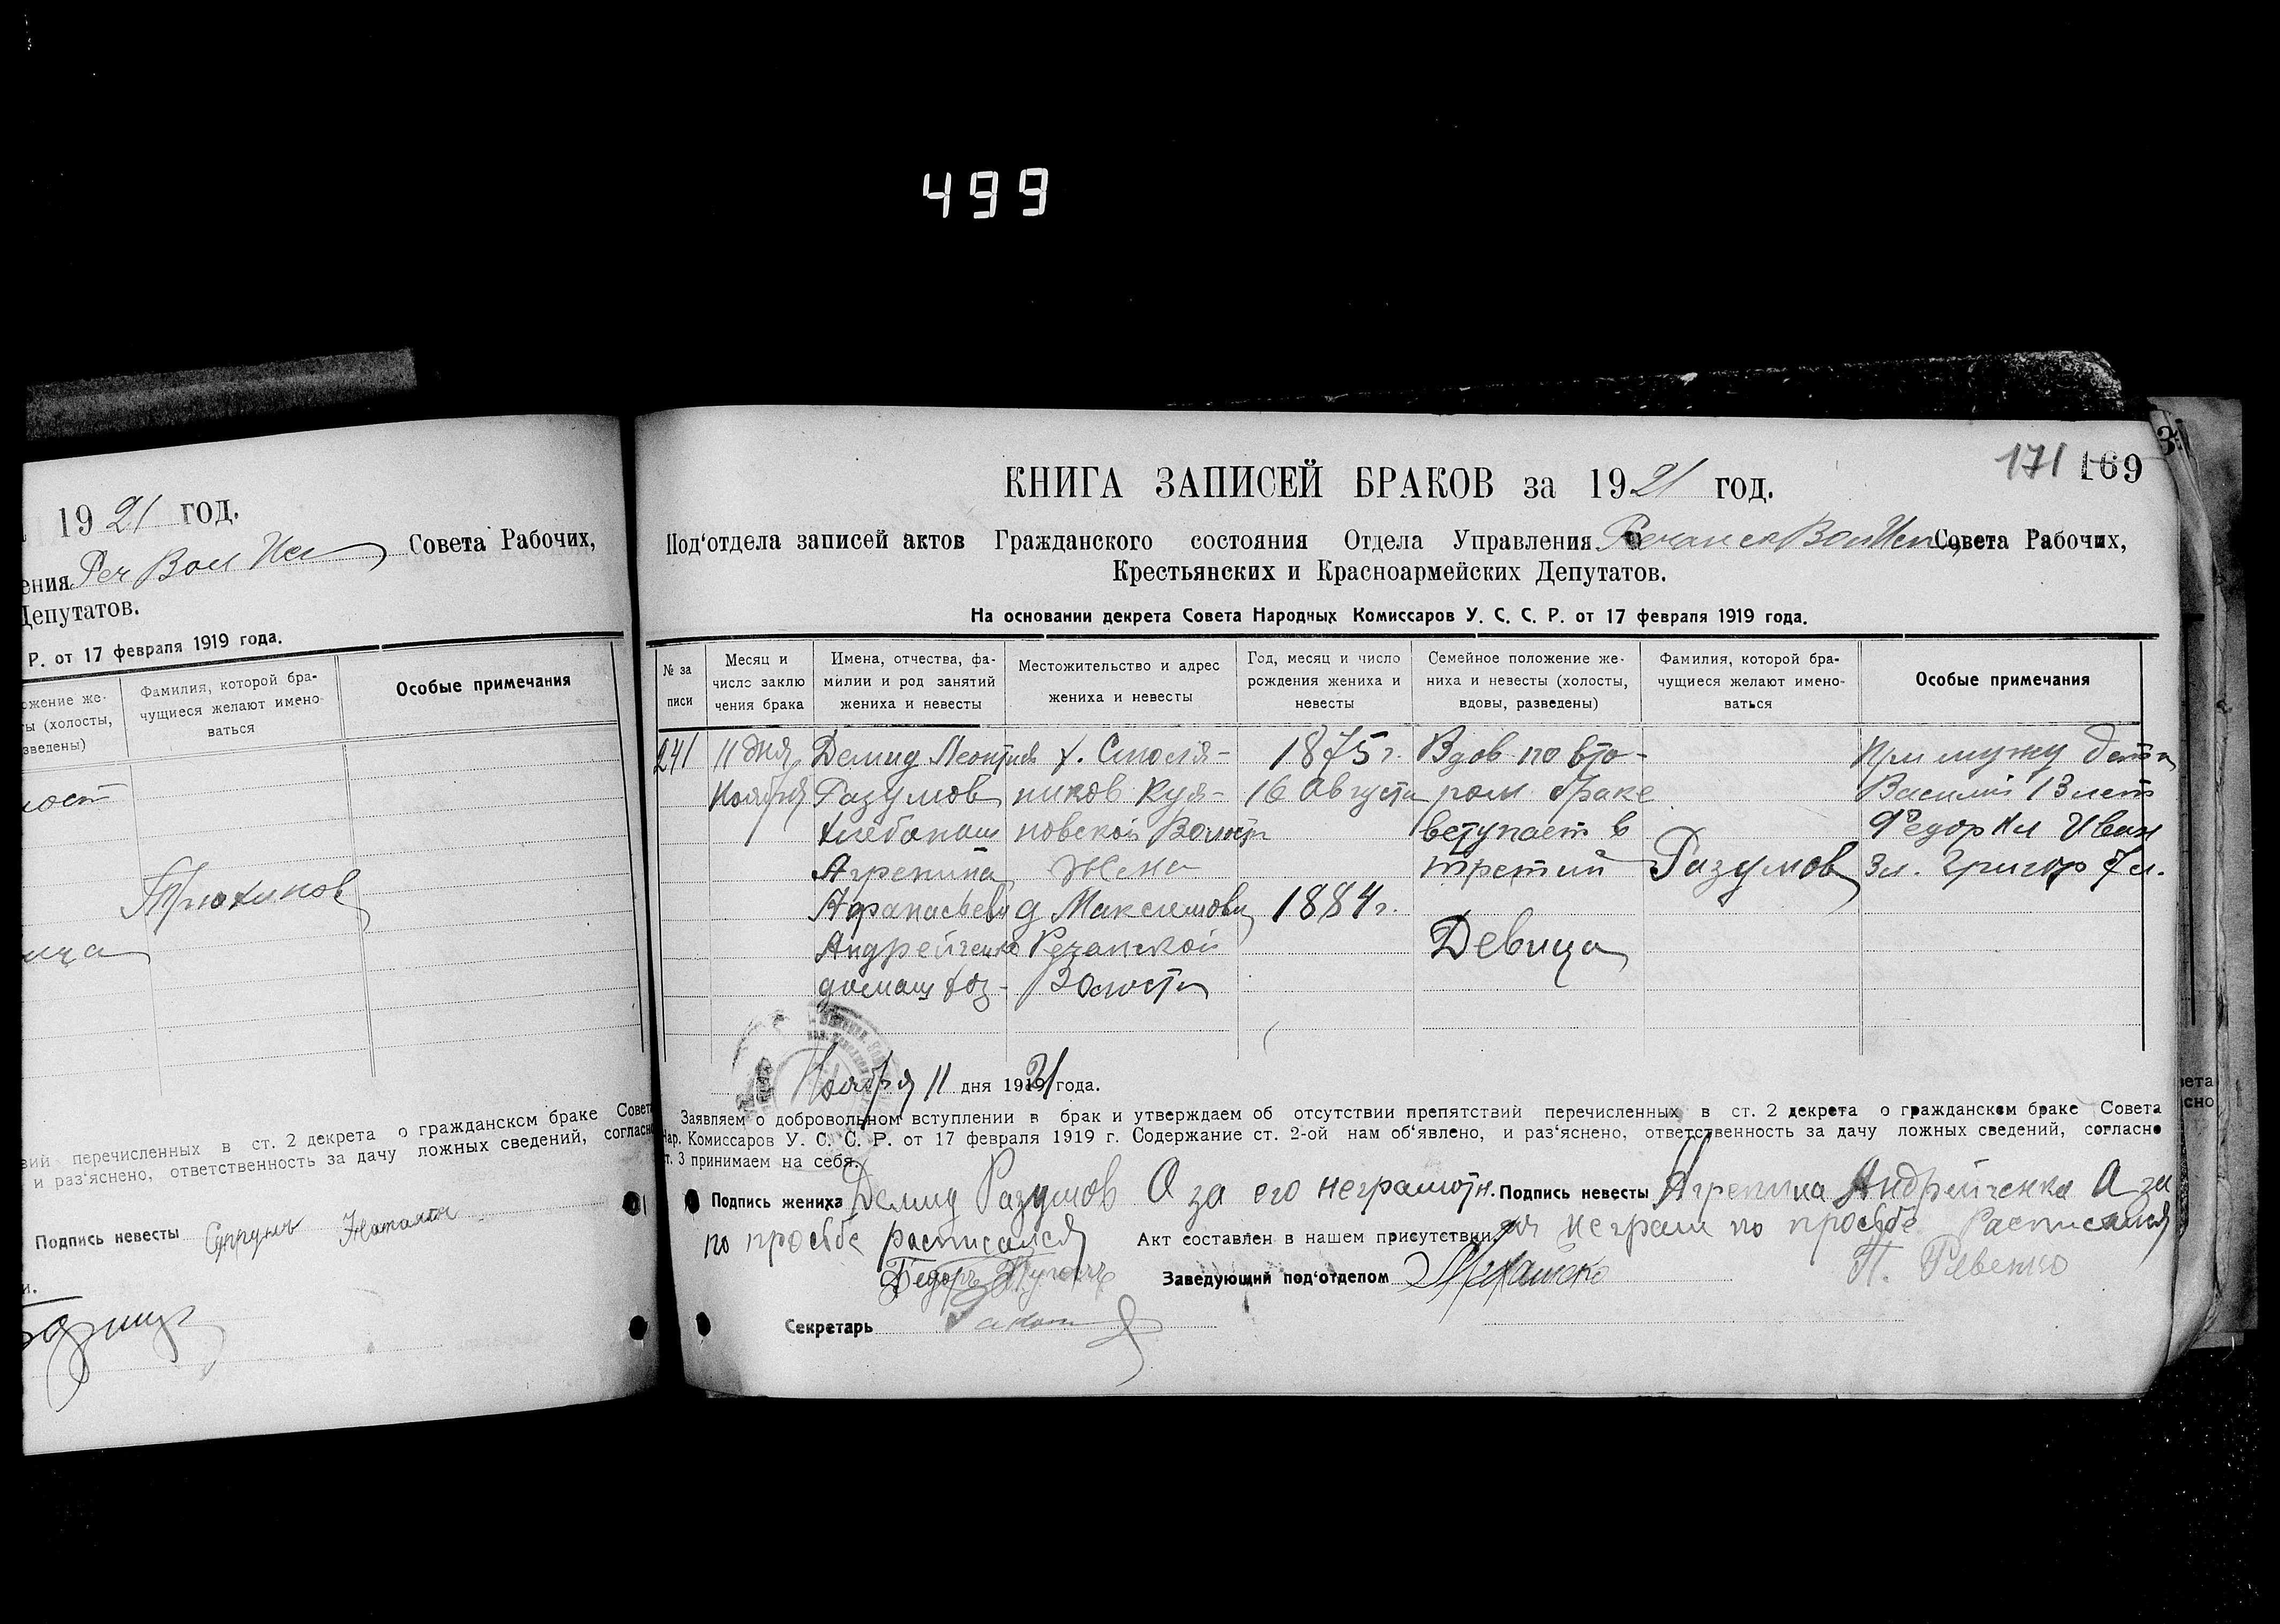 499
1921 год.
ения Реч Вол Исп Совета Рабочих,
Депутатов.
Р. от 17 февраля 1919 года.
ожение же-
ты (холосты,
зведены)
Фамилия, которой бра-
чущиеся желают имено-
ваться
Особые примечания
ий перечисленных в ст. 2 декрета о гражданском браке Совета
и раз'яснено, ответственность за дачу ложных сведений, согласно
Подпись невесты Супрунъ Наталья
3
171 169
КНИГА ЗАПИСЕЙ БРАКОВ за 1921 год.
Под'отдела записей актов Гражданского состояния Отдела Управления Речанск ВолИсп Совета Рабочих,
Крестьянских и Красноармейских Депутатов.
На основании декрета Совета Народных Комиссаров У. С. С. Р. от 17 февраля 1919 года.
№ за
писи
Месяц и
число заклю
чения брака
Имена, отчества, фа-
милии и род занятий
жениха и невесты
Местожительство и адрес
жениха и невесты
Год, месяц и число
рождения жениха и
невесты
Семейное положение же-
ниха и невесты (холосты,
вдовы, разведены)
Фамилия, которой бра-
чущиеся желают имено-
ваться
Особые примечания
241 11 дня Демид х. Столя- 1875 г. Вдов по вто- При мужу дети
Ноября Разумов ников Куя- 16 Августа ром браке Василий 13 лет
хлебопаш новской Волости вступает в Федор Иван
Агрепина Жена третий Разумов 3 л. Григор 7 л.
Афанасьевн д Максимовщ 1884 г.
Андрейченко Речанской Девица
домаш хоз- Волости
Ноября 11 дня 1921 года.
Заявляем о добровольном вступлении в брак и утверждаем об отсутствии препятствий перечисленных в ст. 2 декрета о гражданском браке Совета
Нар. Комиссаров У. С. С. Р. от 17 февраля 1919 г. Содержание ст. 2-ой нам об'явлено, и раз'яснено, ответственность за дачу ложных сведений, согласно
ст. 3 принимаем на себя.
Подпись жениха Демид Разумов А за его неграмотн. Подпись невесты Агрепина Андрейченко А за
по просьбе расписался Акт составлен в нашем присутствии. неграм по просьбе Расписался
Федоръ Заведующий под'отделом П. Ревенко
Секретарь